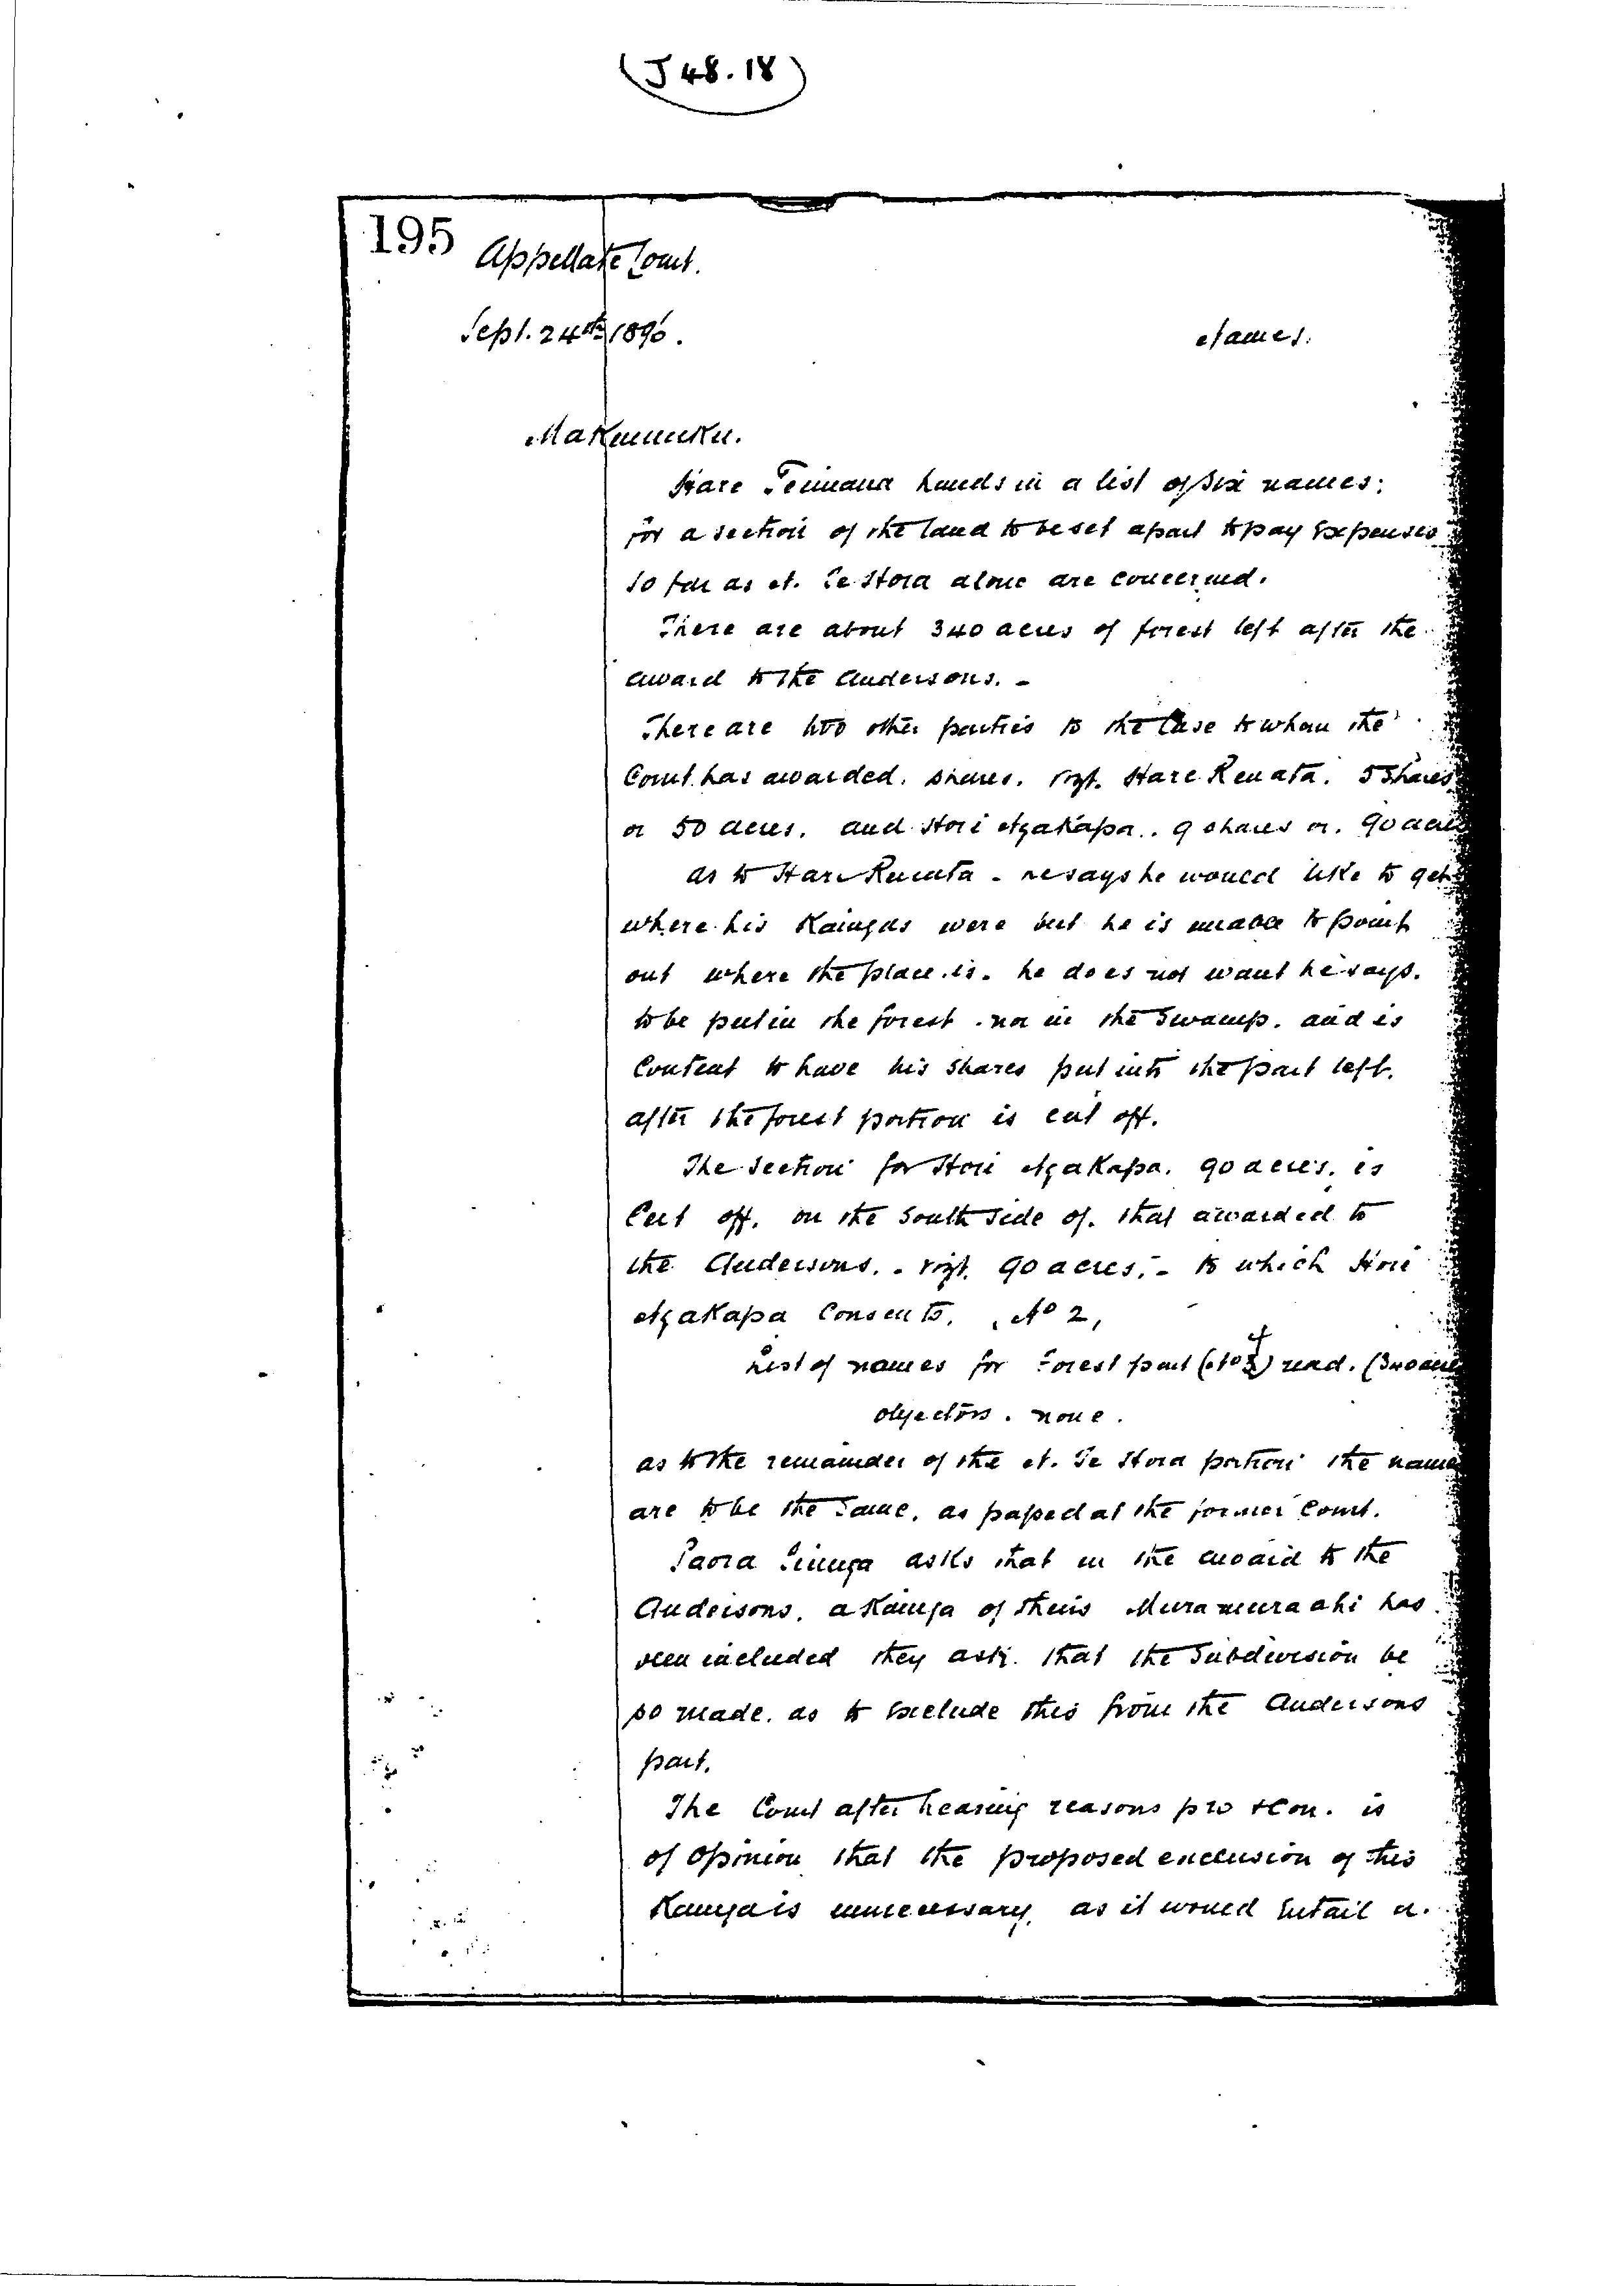 (J 48.18)
195 Appellate Court.
Sept. 24th 1896.
Names.
Makumuku.
Hare Teimana hands in a list of six names;
for a section of the land to be set apart to pay Expenses
so far as N. Te Hora alone are concerned.
There are about 340 acres of forest left after the
award to the Andersons. -
There are two other parties to the Case to whom the
Court has awarded. shares. vizt. Hare Renata. 5 Shares
or 50 acres. and Hori Ngakapa. 9 shares or. 90 acres
As to Hare Renata - he says he would like to get
where his Kaingas were but he is unable to point
out where the place is. he does not want he says.
to be put in the forest. nor in the Swamp. and is
Content to have his shares put into the part left.
after the forest portion is cut off.
The Section for Hori Ngakapa. 90 acres. is
Cut off. on the South Side of. that awarded to
the Andersons. - vizt. 90 acres. - to which Hori
Ngakapa Consents. No 2,
List of names for Forest part (No 4) read. (340 acres
objectors. none.
as to the remainder of the N. Te Hora portion the names
are to be the Same. as passed at the former Court.
Paora Tinuga asks that in the award to the
Andersons. a Kainga of theirs Muramura ahi has
been included they ask. that the Subdivision be
so made. as to Exclude this from the Andersons
part.
The Court after hearing reasons pro & Con. is
of Opinion that the proposed exclusion of this
Kainga is unnecessary. as it would Entail a.